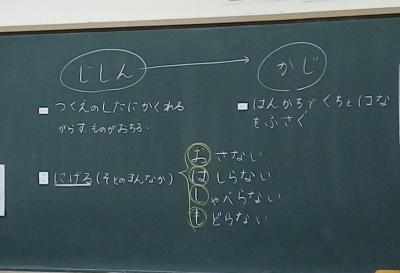 じしん
かじ
つくえのしたにかくれる
がらす、ものがおちる・・
はんかちでくちとはな
をふさぐ
にげる(そとのまんなか)
おさない
はしらない
しゃべらない
もどらない